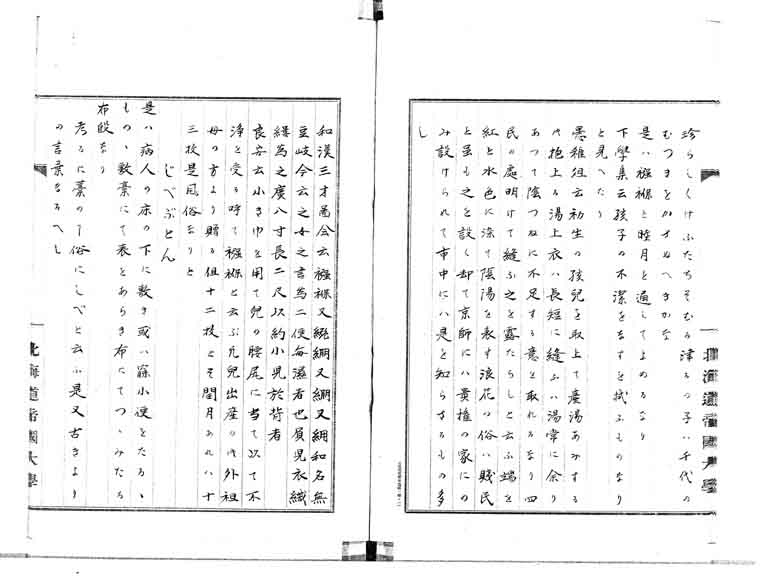 珍らしくけふたちそむる津るの子ハ千代の
むつきをかさぬへきかな
是ハ襁褓と睦月と通してよめるなり
下學集云孩子の不潔をますを拭ふものなり
と見へたり
愚雜俎云初生の孩兒を取上て產湯あみする
時抱上る湯上衣ハ長短に縫ふハ湯常に余り
あつて陰つねに不足する意を取れるなり四
民の處明けて縫ふ之を露たらしと云ふ端を
紅と水色に染て陰陽を表す浪花の俗ハ賤民
と虽も之を設く却て京師にハ貴權の家にの
み設けられて市中にハ是を知らさるもの多
し
和漢三才圖會云襁褓又緥
繃又綳和名無
豆岐今云之女之言為二便每濕者也負兒衣織
縷為之廣八寸長二尺以約小兒於背者
良安云小き巾を用て兒の腰尻に当て以て不
淨と受る呼て襁褓と云ふ凡兒出産の時外祖
母の方より贈る但十二枚とそ閏月あれハ十
三枚是風俗なりと
じべぶとん
是ハ病人の床の下に敷き或ハ寐小便をたるゝ
ものゝ敷藁にて表をあらき布にてつゝみたる
布殿なり
考るに藁の俗にじべと云ふ是又古きより
の言葉なるへし
北海道帝國大學
北海道帝國大學